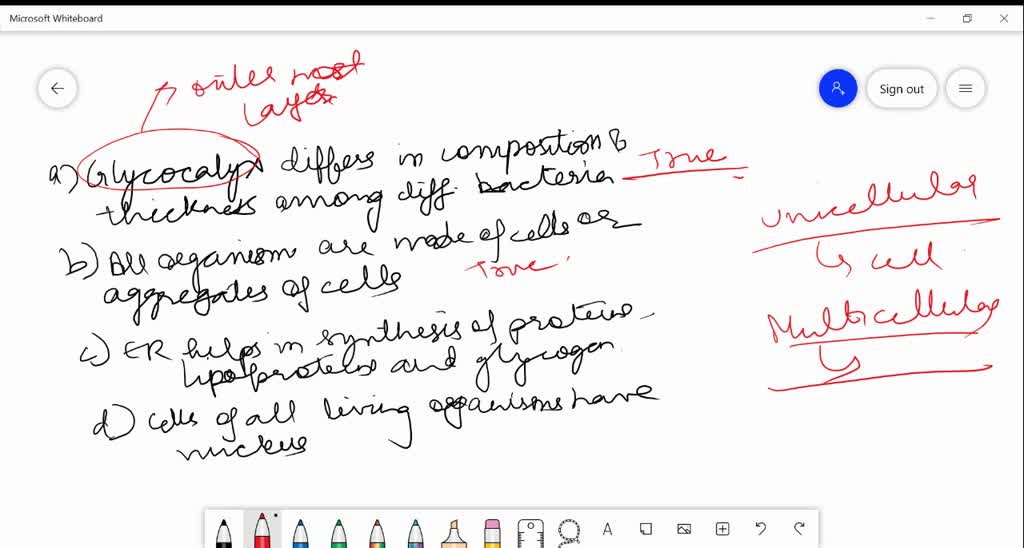 Microsoft Whiteboard
Sign out
outer most
Layer
a) Glycocalyx differs in composition &
thickness among diff. bacteria True
b) All organism are made of cells or
aggregates of cells True.
c) ER helps in synthesis of proteins,
lipoproteins and glycogen
d) Cells of all living organisms have
nucleus
Unicellular
↳ cell
Multicellular
A